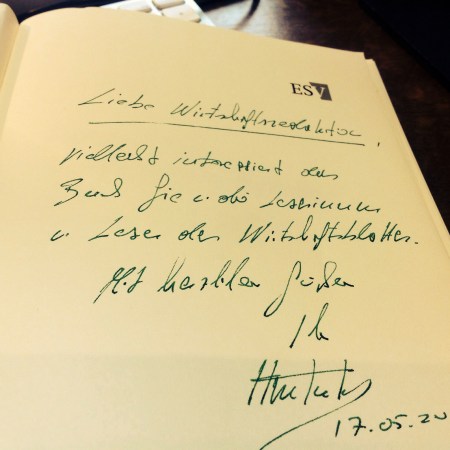 ESV
Liebe Wirtschaftsredaktion,
vielleicht interessiert das
Buch Sie u. die Leserinnen
u. Leser des Wirtschaftsblattes.
Mit herzlichen Grüßen
Ihr
17.05.20